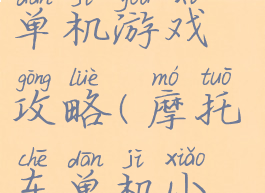 dān jī yóu xì
单机游戏
gōng lüè mó tuō
攻略(摩托
chē dān jī xiǎo
车单机小